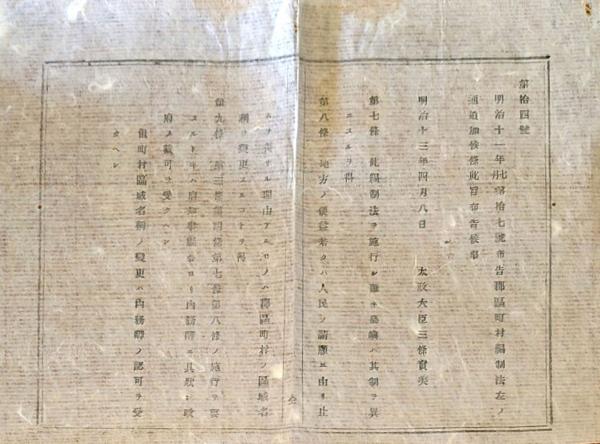 第拾四號
明治十一年七月第拾七號布告郡區町村編制法左ノ
通追加候條此旨布告候事
明治十三年四月八日 太政大臣三條實美
第七條 此編制法ヲ施行シ難キ島嶼ハ其制ヲ異
ニスルヲ得
第八條 地方ノ便益若クハ人民ノ請願ニ由リ止
ムヲ得サル理由アルモノハ郡區町村ノ區域名
稱ヲ變更スルコトヲ得
第九條 第三條第四條第七條第八條ノ施行ヲ要
スルトキハ府知事縣令ヨリ內務卿ニ具狀シ政
府ノ裁可ヲ受クヘシ
但町村區域名稱ノ變更ハ內務卿ノ認可ヲ受
クヘシ